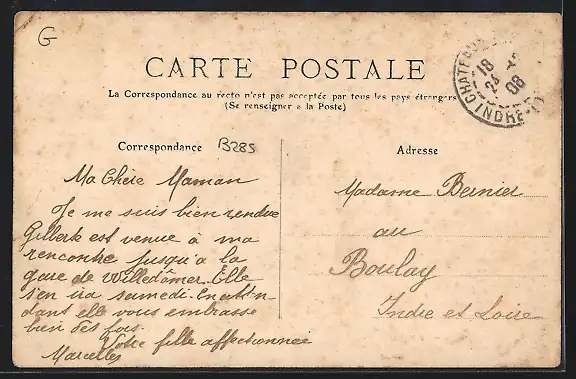 G
CARTE POSTALE
La Correspondance au recto n'est pas acceptée par tous les pays étrangers
(Se renseigner a la Poste)
CHATEAUROUX
18
24
08
INDRE
Correspondance
B285
Adresse
Ma Chère Maman
Je me suis bien rendue
Gilberte est venue à ma
rencontre jusqu'a la
gare de Villedômer. Elle
s'en ira samedi. En atten-
dant elle vous embrasse
bien des fois.
Votre fille affectionnée
Marcelle
Madame Bernier
au
Boulay
Indre et Loire